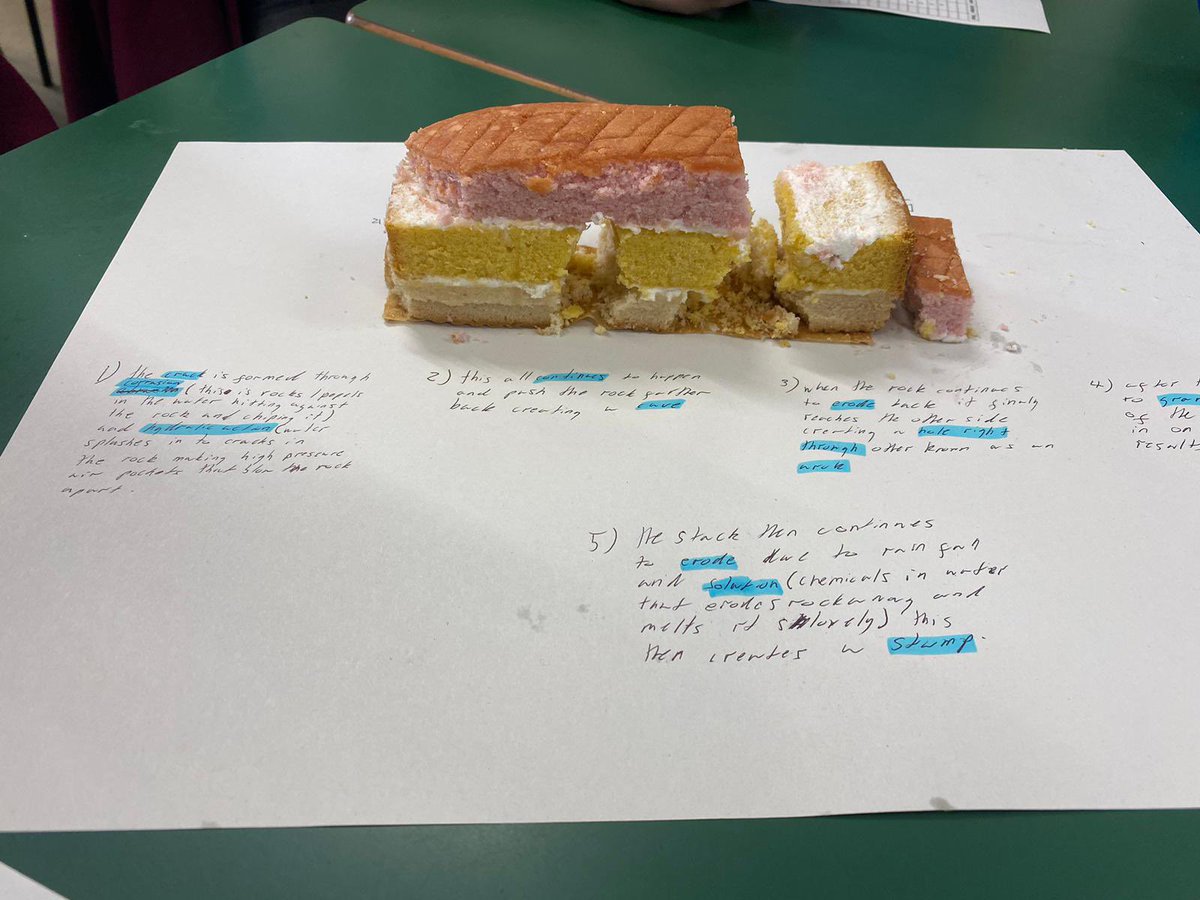 1) the crack is formed through
corrasion
(this is rocks/pepols
in the water hiting against
the rock and chiping it)
and hydralic action (water
splashes in to cracks in
the rock making high pressure
air pockets that blow the rock
apart.
2) this all continues to happen
and push the rock further
back creating a cave
3) when the rock continues
to erode back it finaly
reaches the other side
creating a hole right
through other known as an
4) after t
to gra
of the
in on
results
5) the stack then continues
to erode due to rain fall
and solution (chemicals in water
that erodes rock away and
melts it slowely) this
then creates a stump.